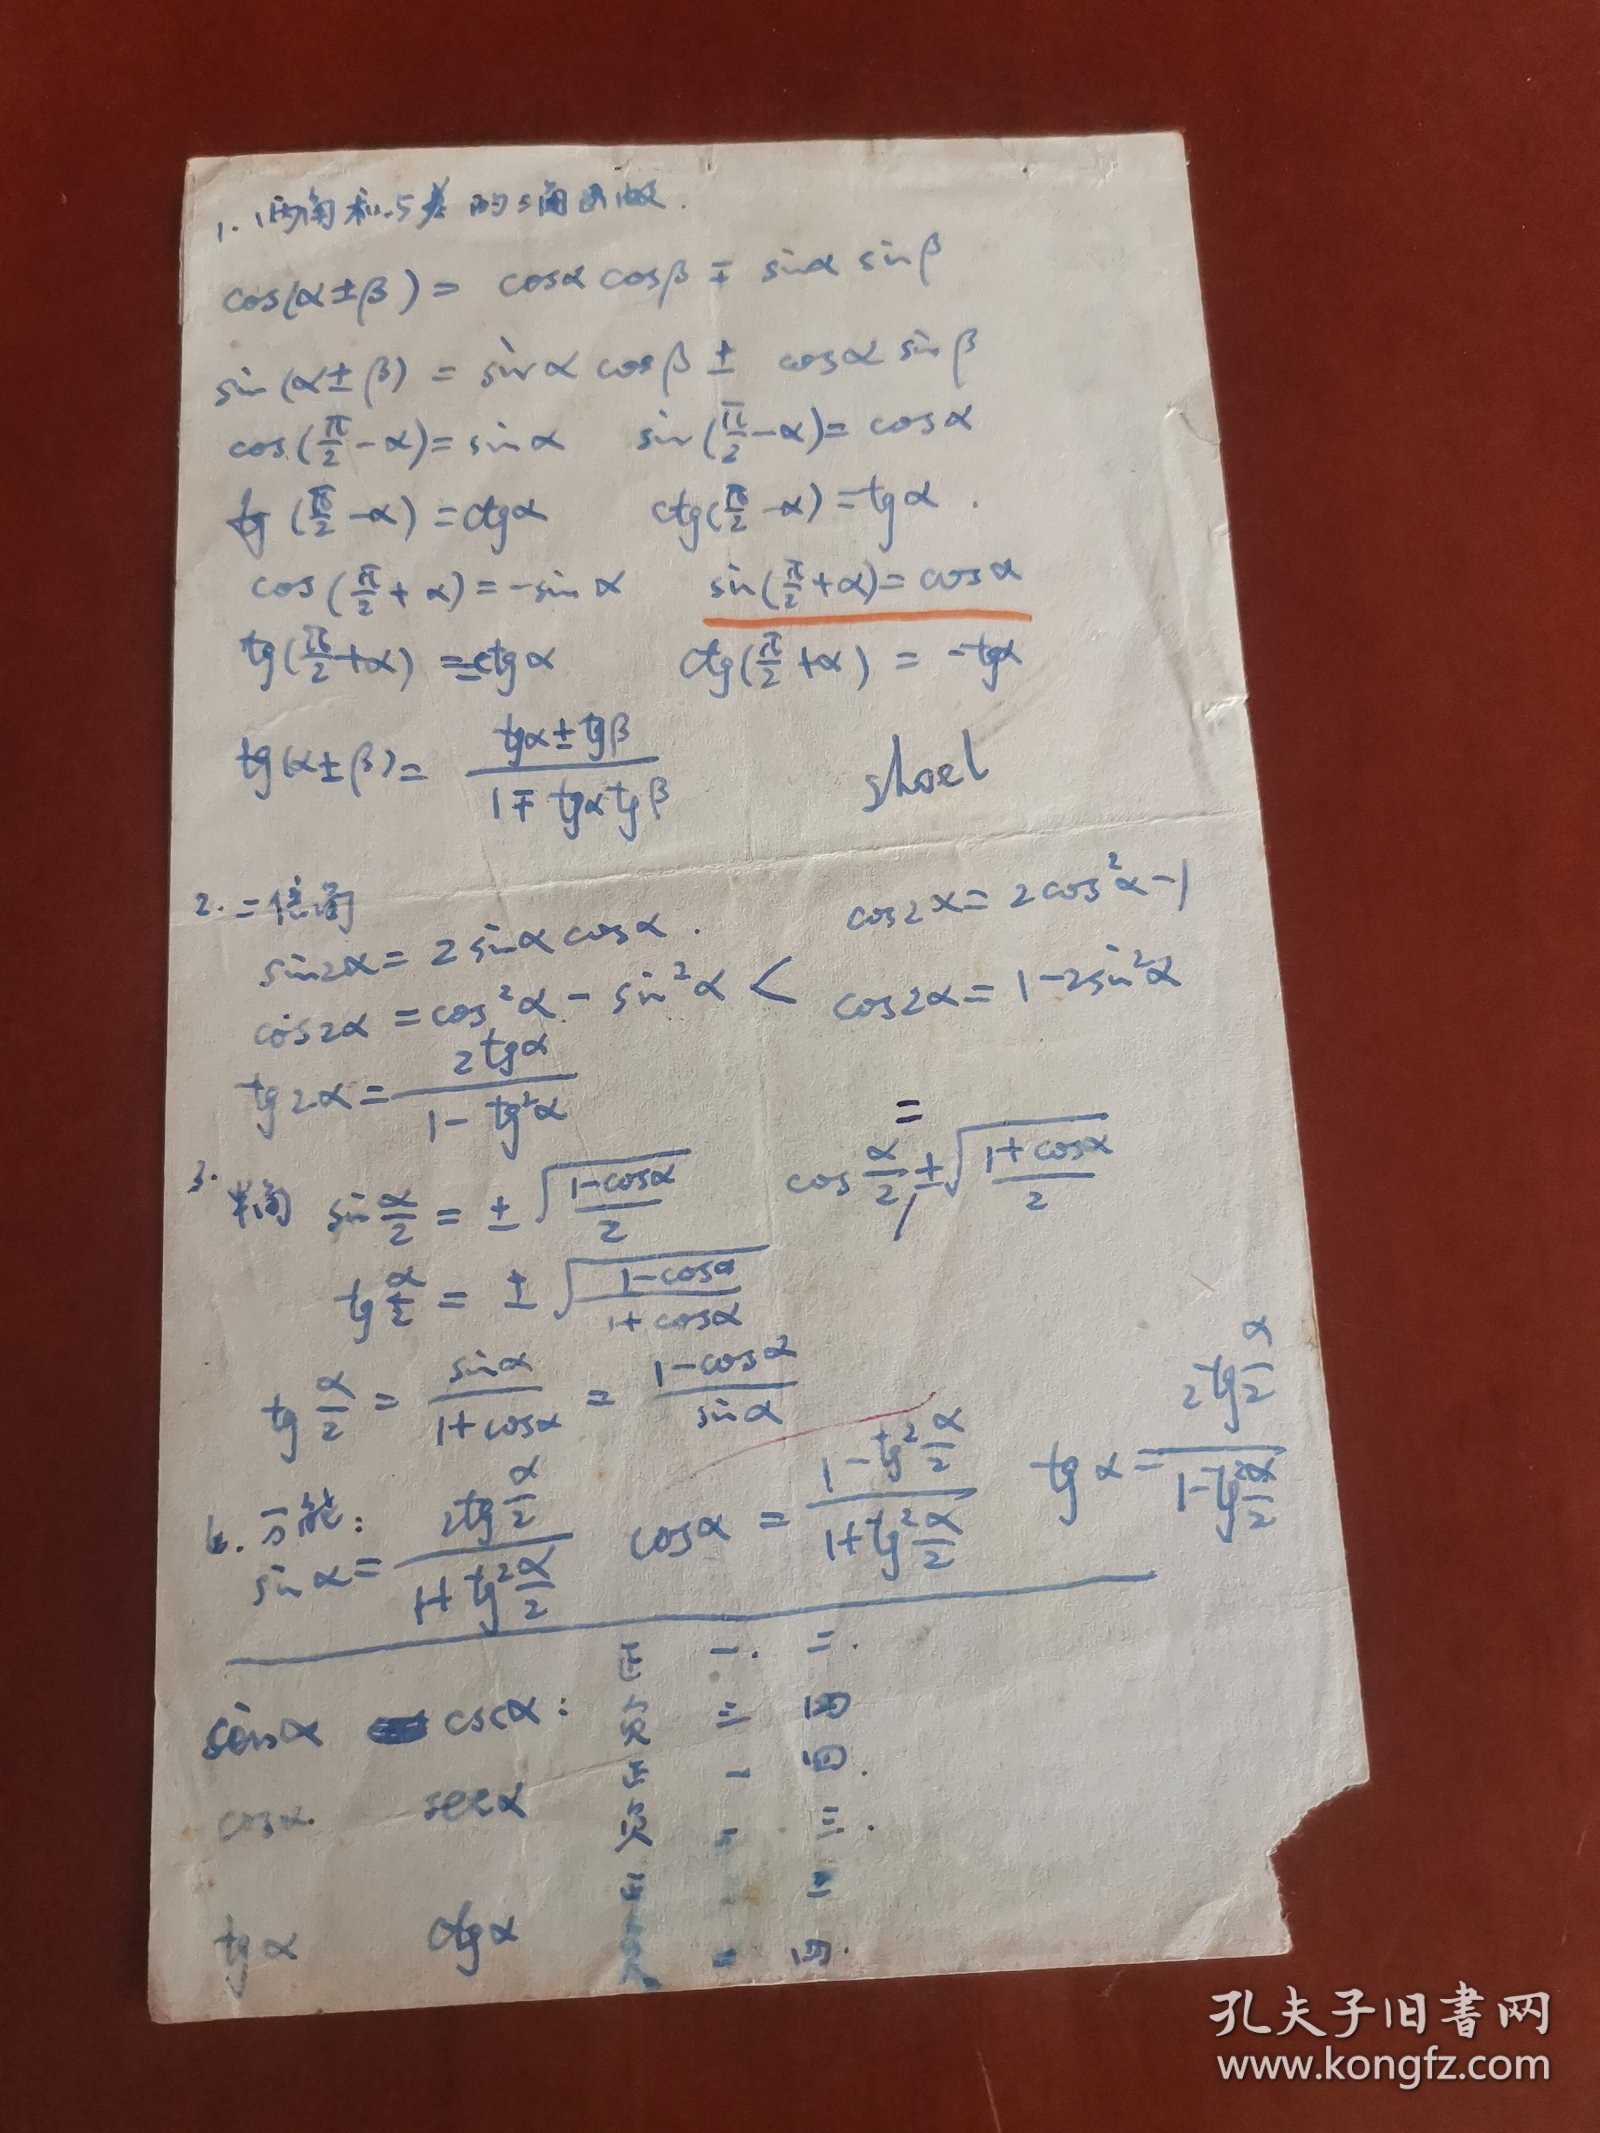 1. 两角和与差的三角函数.
cos(α±β) = cosα cosβ ∓ sinα sinβ
sin(α±β) = sinα cosβ ± cosα sinβ
cos(π/2-α)=sinα sin(π/2-α)=cosα
tg(π/2-α)=ctgα ctg(π/2-α)=tgα.
cos(π/2+α)=-sinα sin(π/2+α)=cosα
tg(π/2+α)=-ctgα ctg(π/2+α)=-tgα
tg(α±β)= (tgα±tgβ)/(1∓tgαtgβ)
2. 二倍角
sin2α=2sinαcosα. cos2α=2cos²α-1
cos2α=cos²α-sin²α < cos2α=1-2sin²α
tg2α=2tgα/(1-tg²α)
3.
半角 sin α/2 = ±√((1-cosα)/2) cos α/2 = ±√((1+cosα)/2)
tg α/2 = ±√((1-cosα)/(1+cosα))
tg α/2 = sinα/(1+cosα) = (1-cosα)/sinα
万能:
sinα=2tg α/2/(1+tg² α/2) cosα=(1-tg² α/2)/(1+tg² α/2) tgα=2tg α/2/(1-tg² α/2)
正 一. 二.
sinα cscα: 负 三 四
正 一 四.
cosα secα 负 二 三.
正 一 三
tgα ctgα 负 二 四.
孔夫子旧书网
www.kongfz.com